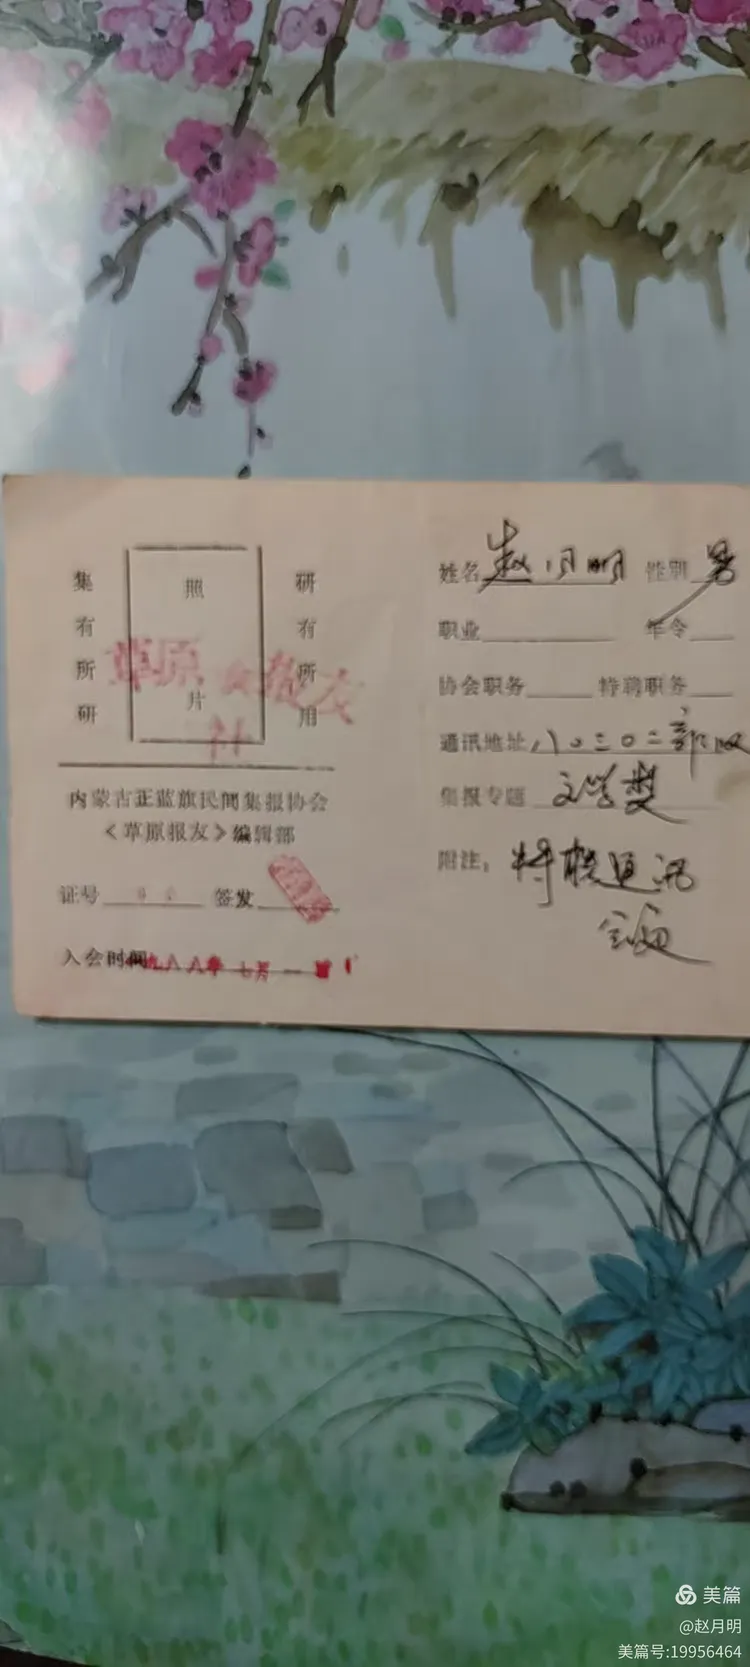 集有所研
照片
研有所用
草原报友社
内蒙古正蓝旗民间集报协会
《草原报友》编辑部
证号
签发
入会时间 一九八八年七月一日
姓名 赵月明 性别 男
职业 年令
协会职务 特聘职务
通讯地址 八〇三〇二部队
集报专题 文学类
附注:特楼通讯
美篇
@赵月明
美篇号:19956464